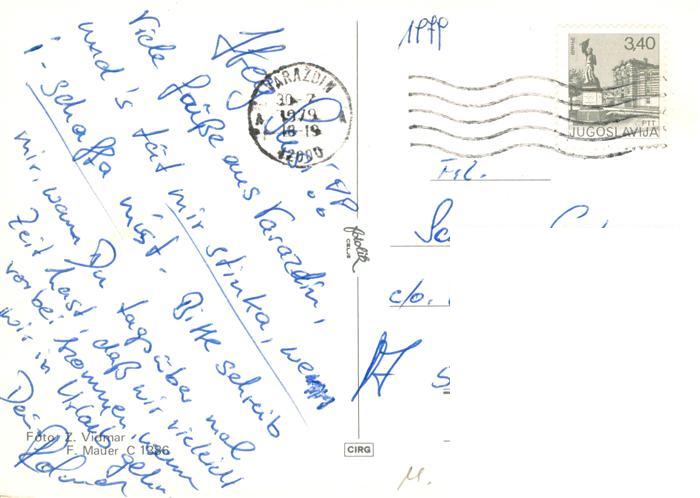 Hey Susi!!
Viele Grüße aus Varazdin,
und's tät mir stinka, wenn
i - schaffa müst. Bitte schreib
mir, wann Du tagsüber mal
Zeit hast, daß wir vielleicht
vorbei kommen, wenn
wir in Urlaub gehn
Dein
Roland
Foto: Z. Vidmar
F. Mauer C 1286
VARAZDIN
30-7
1979
18-19
A
42000
fotolik
CELJE
CIRG
1979
3,40
PTT
JUGOSLAVIJA
Frl.
c/o.
S
M.